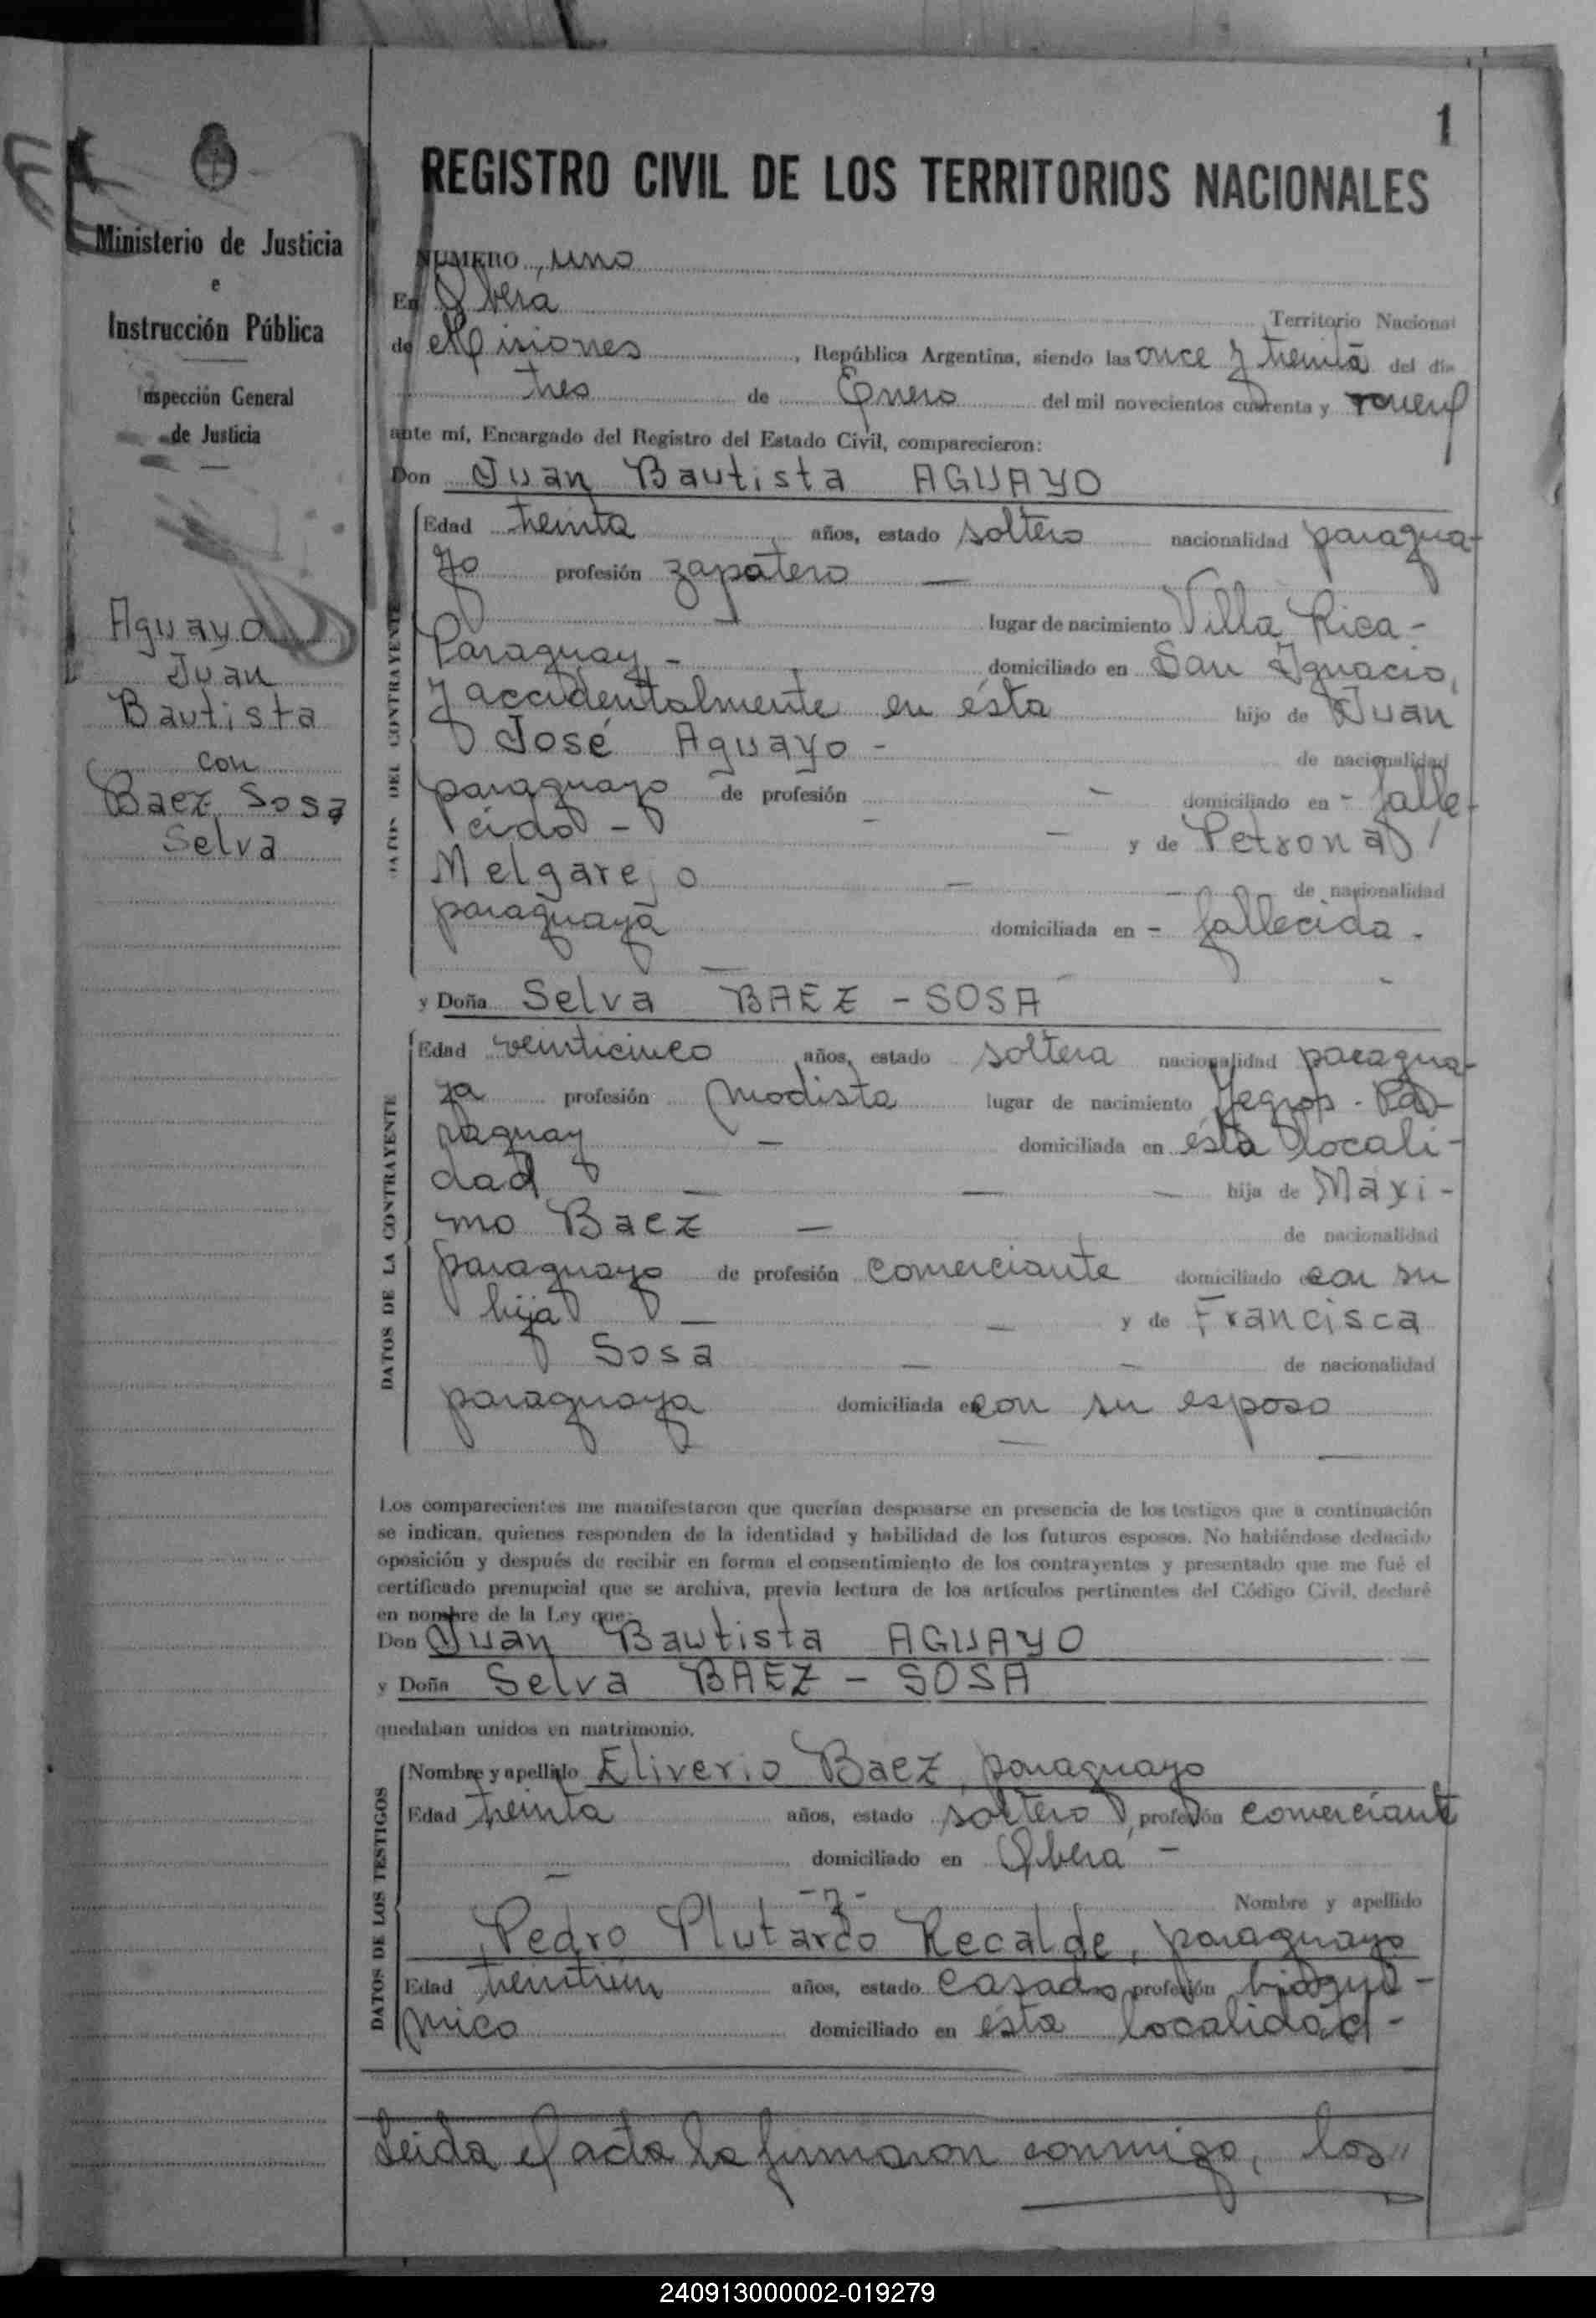 1
Ministerio de Justicia
e
Instrucción Pública
Inspección General
de Justicia
Aguayo
Juan
Bautista
con
Baez Sosa
Selva
REGISTRO CIVIL DE LOS TERRITORIOS NACIONALES
NUMERO, uno
En Oberá Territorio Nacional
de Misiones, República Argentina, siendo las once y treinta del día
tres de Enero del mil novecientos cuarenta y
ante mí, Encargado del Registro del Estado Civil, comparecieron:
Don Juan Bautista AGUAYO
DATOS DEL CONTRAYENTE
Edad treinta años, estado soltero nacionalidad paragua-
yo profesión zapatero —
lugar de nacimiento Villa Rica-
Paraguay,- domiciliado en San Ignacio,
y accidentalmente en ésta hijo de Juan
José Aguayo - de nacionalidad
paraguayo de profesión - domiciliado en - falle-
cido - - - y de Petrona
Melgarejo - - de nacionalidad
paraguaya domiciliada en - fallecida.
y Doña Selva BAEZ - SOSA
DATOS DE LA CONTRAYENTE
Edad veinticinco años, estado soltera nacionalidad paragua-
ya profesión modista lugar de nacimiento Yegros. Pa-
raguay — domiciliada en ésta locali-
dad — — — hija de Maxi-
mo Baez — de nacionalidad
paraguayo de profesión comerciante domiciliado con su
hija — — y de Francisca
Sosa — — de nacionalidad
paraguaya domiciliada en con su esposo
Los comparecientes me manifestaron que querían desposarse en presencia de los testigos que a continuación
se indican, quienes responden de la identidad y habilidad de los futuros esposos. No habiéndose deducido
oposición y después de recibir en forma el consentimiento de los contrayentes y presentado que me fué el
certificado prenupcial que se archiva, previa lectura de los artículos pertinentes del Código Civil, declaré
en nombre de la Ley que:
Don Juan Bautista AGUAYO
y Doña Selva BAEZ - SOSA
quedaban unidos en matrimonio.
DATOS DE LOS TESTIGOS
Nombre y apellido Eliverio Baez, paraguayo
Edad treinta años, estado soltero, profesión comerciante
— domiciliado en Oberá -
- y - Nombre y apellido
Pedro Plutarco Recalde, paraguayo
Edad treintiún años, estado casado, profesión bioquí-
mico domiciliado en ésta localidad-
Leida el acta la firmaron conmigo, los"
240913000002-019279